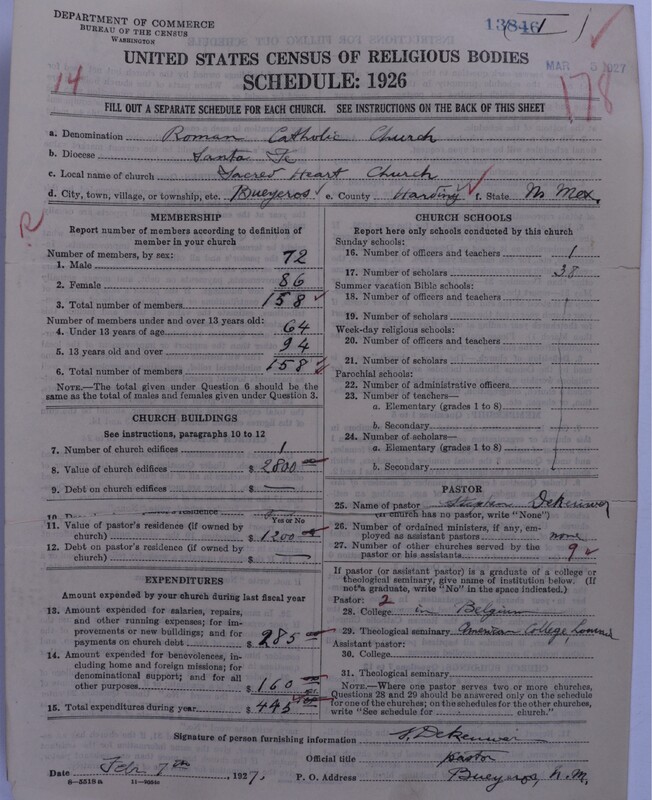 DEPARTMENT OF COMMERCE
BUREAU OF THE CENSUS
WASHINGTON
13846
MAR 5 1927
UNITED STATES CENSUS OF RELIGIOUS BODIES
SCHEDULE: 1926
14
178
FILL OUT A SEPARATE SCHEDULE FOR EACH CHURCH. SEE INSTRUCTIONS ON THE BACK OF THIS SHEET
a. Denomination Roman Catholic Church
b. Diocese Santa Fe
c. Local name of church Sacred Heart Church
d. City, town, village, or township, etc. Bueyeros e. County Harding f. State N. Mex.
R
MEMBERSHIP
Report number of members according to definition of
member in your church
Number of members, by sex:
1. Male 72
2. Female 86
3. Total number of members 158
Number of members under and over 13 years old:
4. Under 13 years of age 64
5. 13 years old and over 94
6. Total number of members 158
NOTE.—The total given under Question 6 should be the
same as the total of males and females given under Question 3.
CHURCH BUILDINGS
See instructions, paragraphs 10 to 12
7. Number of church edifices 1
8. Value of church edifices $ 2800
9. Debt on church edifices $ —
Yes or No
11. Value of pastor's residence (if owned by
church) $ 1200
12. Debt on pastor's residence (if owned by
church) $ —
EXPENDITURES
Amount expended by your church during last fiscal year
13. Amount expended for salaries, repairs,
and other running expenses; for im-
provements or new buildings; and for
payments on church debt $ 285
14. Amount expended for benevolences, in-
cluding home and foreign missions; for
denominational support; and for all
other purposes $ 160
15. Total expenditures during year $ 445
CHURCH SCHOOLS
Report here only schools conducted by this church
Sunday schools:
16. Number of officers and teachers 1
17. Number of scholars 38
Summer vacation Bible schools:
18. Number of officers and teachers
19. Number of scholars
Week-day religious schools:
20. Number of officers and teachers
21. Number of scholars
Parochial schools:
22. Number of administrative officers
23. Number of teachers—
a. Elementary (grades 1 to 8)
b. Secondary
24. Number of scholars—
a. Elementary (grades 1 to 8)
b. Secondary
PASTOR
25. Name of pastor Stephen
(If church has no pastor, write "None")
26. Number of ordained ministers, if any, em-
ployed as assistant pastors none
27. Number of other churches served by the
pastor or his assistants 9
If pastor (or assistant pastor) is a graduate of a college or
theological seminary, give name of institution below. (If
not a graduate, write "No" in the space indicated.)
Pastor: 2
28. College in Belgium
29. Theological seminary American College,
Assistant pastor:
30. College
31. Theological seminary
NOTE.—Where one pastor serves two or more churches,
Questions 28 and 29 should be answered only on the schedule
for one of the churches; on the schedules for the other churches,
write "See schedule for church."
Signature of person furnishing information
Official title Pastor
Date Feb. 7th, 1927. P. O. Address Bueyeros, N.M.